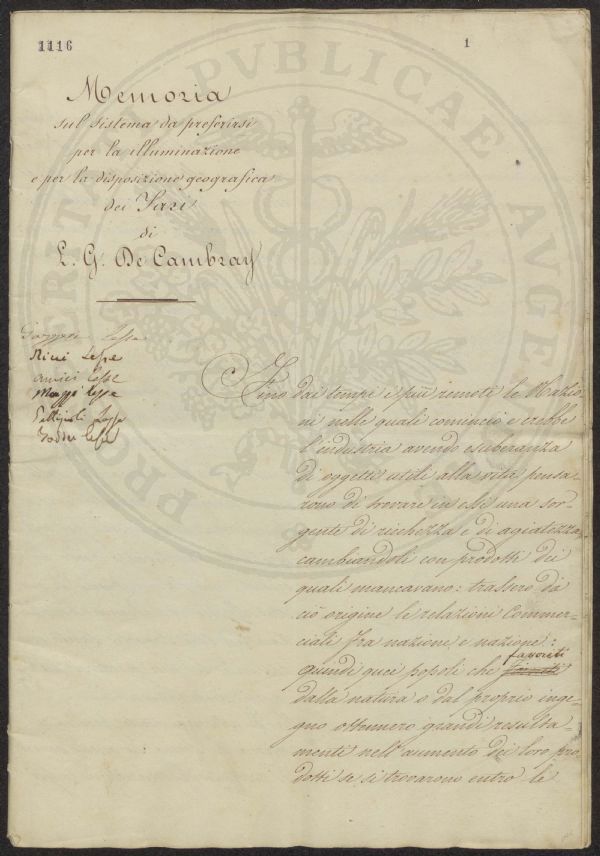 1116
1
Memoria
sul sistema da preferirsi
per la illuminazione
e per la disposizione geografica
dei Fari
di
L. G. De Cambray
Lesse
Ricci Lesse
Amici Lesse
Mazzi Lesse
Lesse
Lesse
Fino dai tempi i più remoti le Nazio-
ni nelle quali cominciò e crebbe
l'industria avendo esuberanza
di oggetti utili alla vita pensa-
rono di trovare in essi una sor-
gente di ricchezza e di agiatezza
cambiandoli con prodotti dei
quali mancavano: trassero da
ciò origine le relazioni Commer-
ciali fra nazione e nazione:
favoriti
quindi quei popoli che
dalla natura o dal proprio inge-
gno ottennero grandi resulta-
menti nell'aumento dei loro pro-
dotti se si trovarono entro le
PROSPERITATI PVBLICAE AVGENDAE